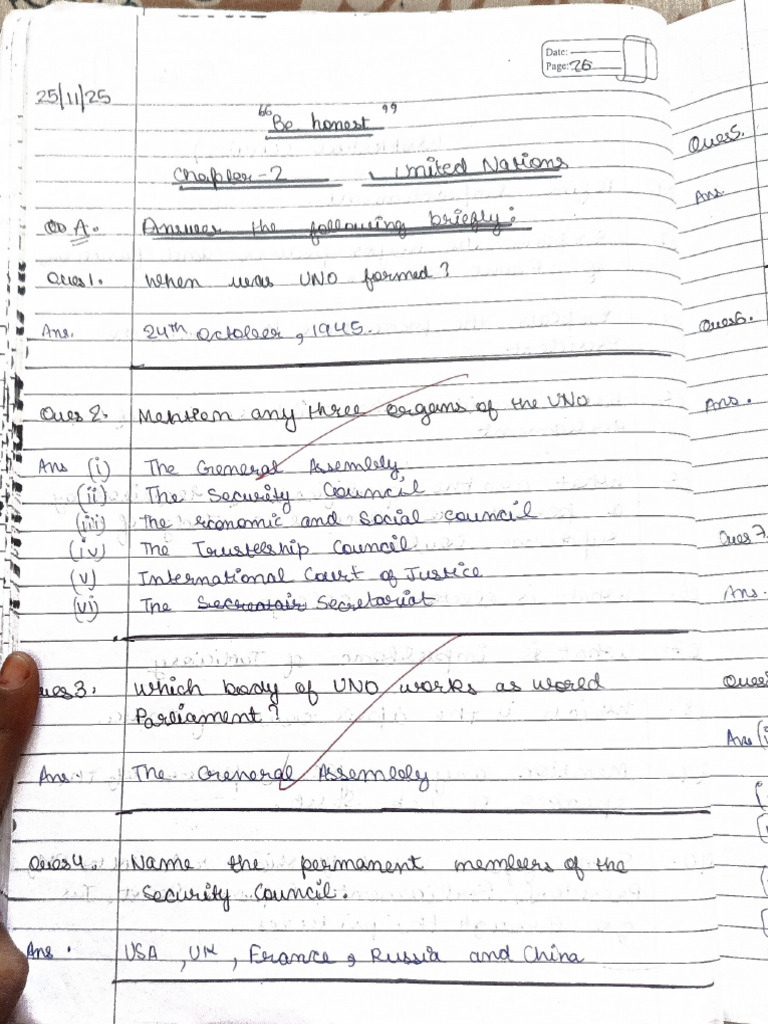 Date:
Page: 26
25/11/25
"Be honest"
Chapter-2 United Nations
A. Answer the following briefly:
Ques1. When was UNO formed?
Ans. 24th October, 1945.
Ques 2. Mention any three organs of the UNO
Ans (i) The General Assembly
(ii) The Security Council
(iii) The Economic and Social Council
(iv) The Trusteeship Council
(v) International Court of Justice
(vi) The Secretariat
Ques3. Which body of UNO works as world
Parliament?
Ans. The General Assembly
Ques4. Name the permanent members of the
Security Council.
Ans. USA, UK, France, Russia and China
Ques5.
Ans.
Ques6.
Ans.
Ques7.
Ans.
Ques
Ans (i